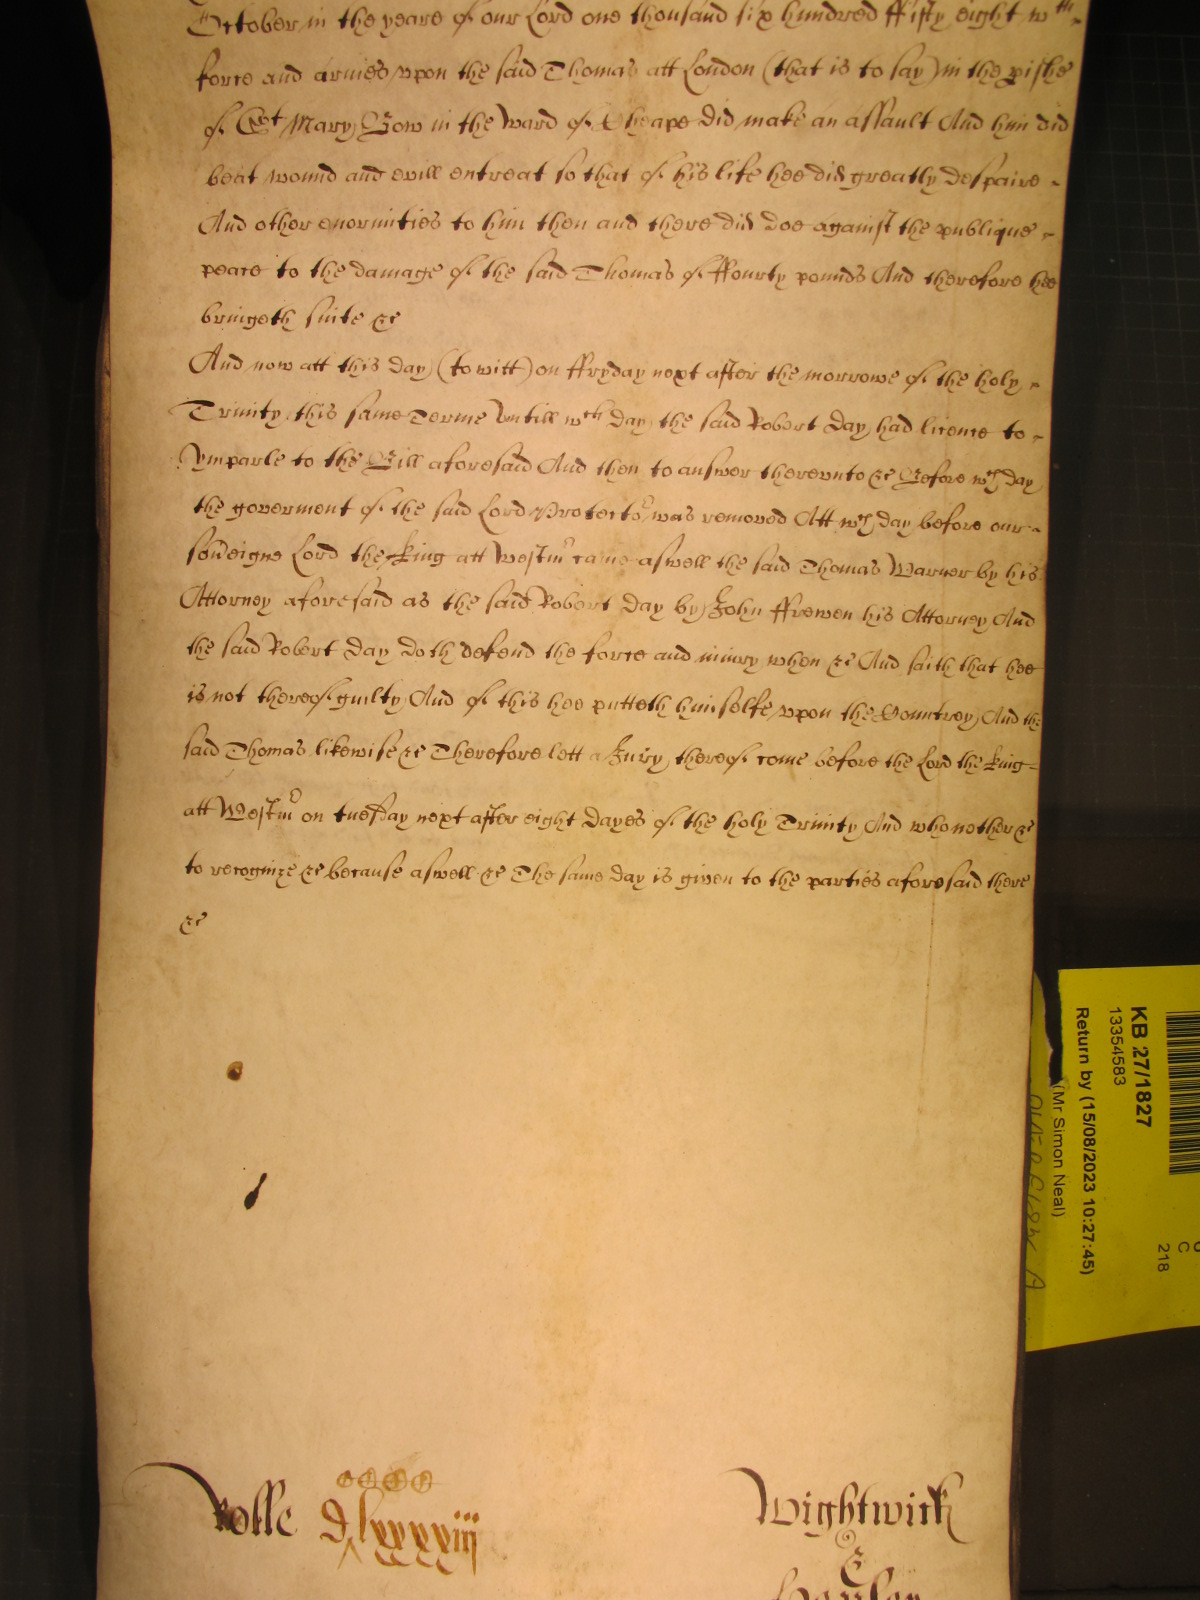 October in the yeare of our Lord one thousand six hundred ffifty eight wth
force and armes vpon the said Thomas att London (that is to say) in the pishe
of St Mary Bow in the Ward of Cheape did make an assault And him did
beat wound and evill entreat so that of his life hee did greatly despaire
And other enormities to him then and there did doe against the publique
peace to the damage of the said Thomas of ffourty pounds And therefore hee
bringeth suite &c
And now att this day (to witt) on ffryday next after the morrowe of the holy
Trinity this same Terme vntill wch day the said Robert Day had licence to
Ymparle to the Bill aforesaid And then to answer therevnto &c Before wch day
the goverment of the said Lord Protector was removed Att wch day before our
soveigne Lord the King att Westmr came aswell the said Thomas Warner by his
Attorney aforesaid as the said Robert Day by John ffrewen his Attorney And
the said Robert Day doth defend the force and iniury when &c And saith that hee
is not thereof guilty And of this hee putteth himselfe vpon the Country And the
said Thomas likewise &c Therefore lett a Jury thereof come before the Lord the King
att Westmr on tuesday next after eight dayes of the holy Trinity And who nother &c
to recognize &c because aswell &c The same day is given to the parties aforesaid there
&c
Rolle
Wightwick
&
KB 27/1827
13354583
Return by (15/08/2023 10:27:45)
(Mr Simon Neal)
C
218